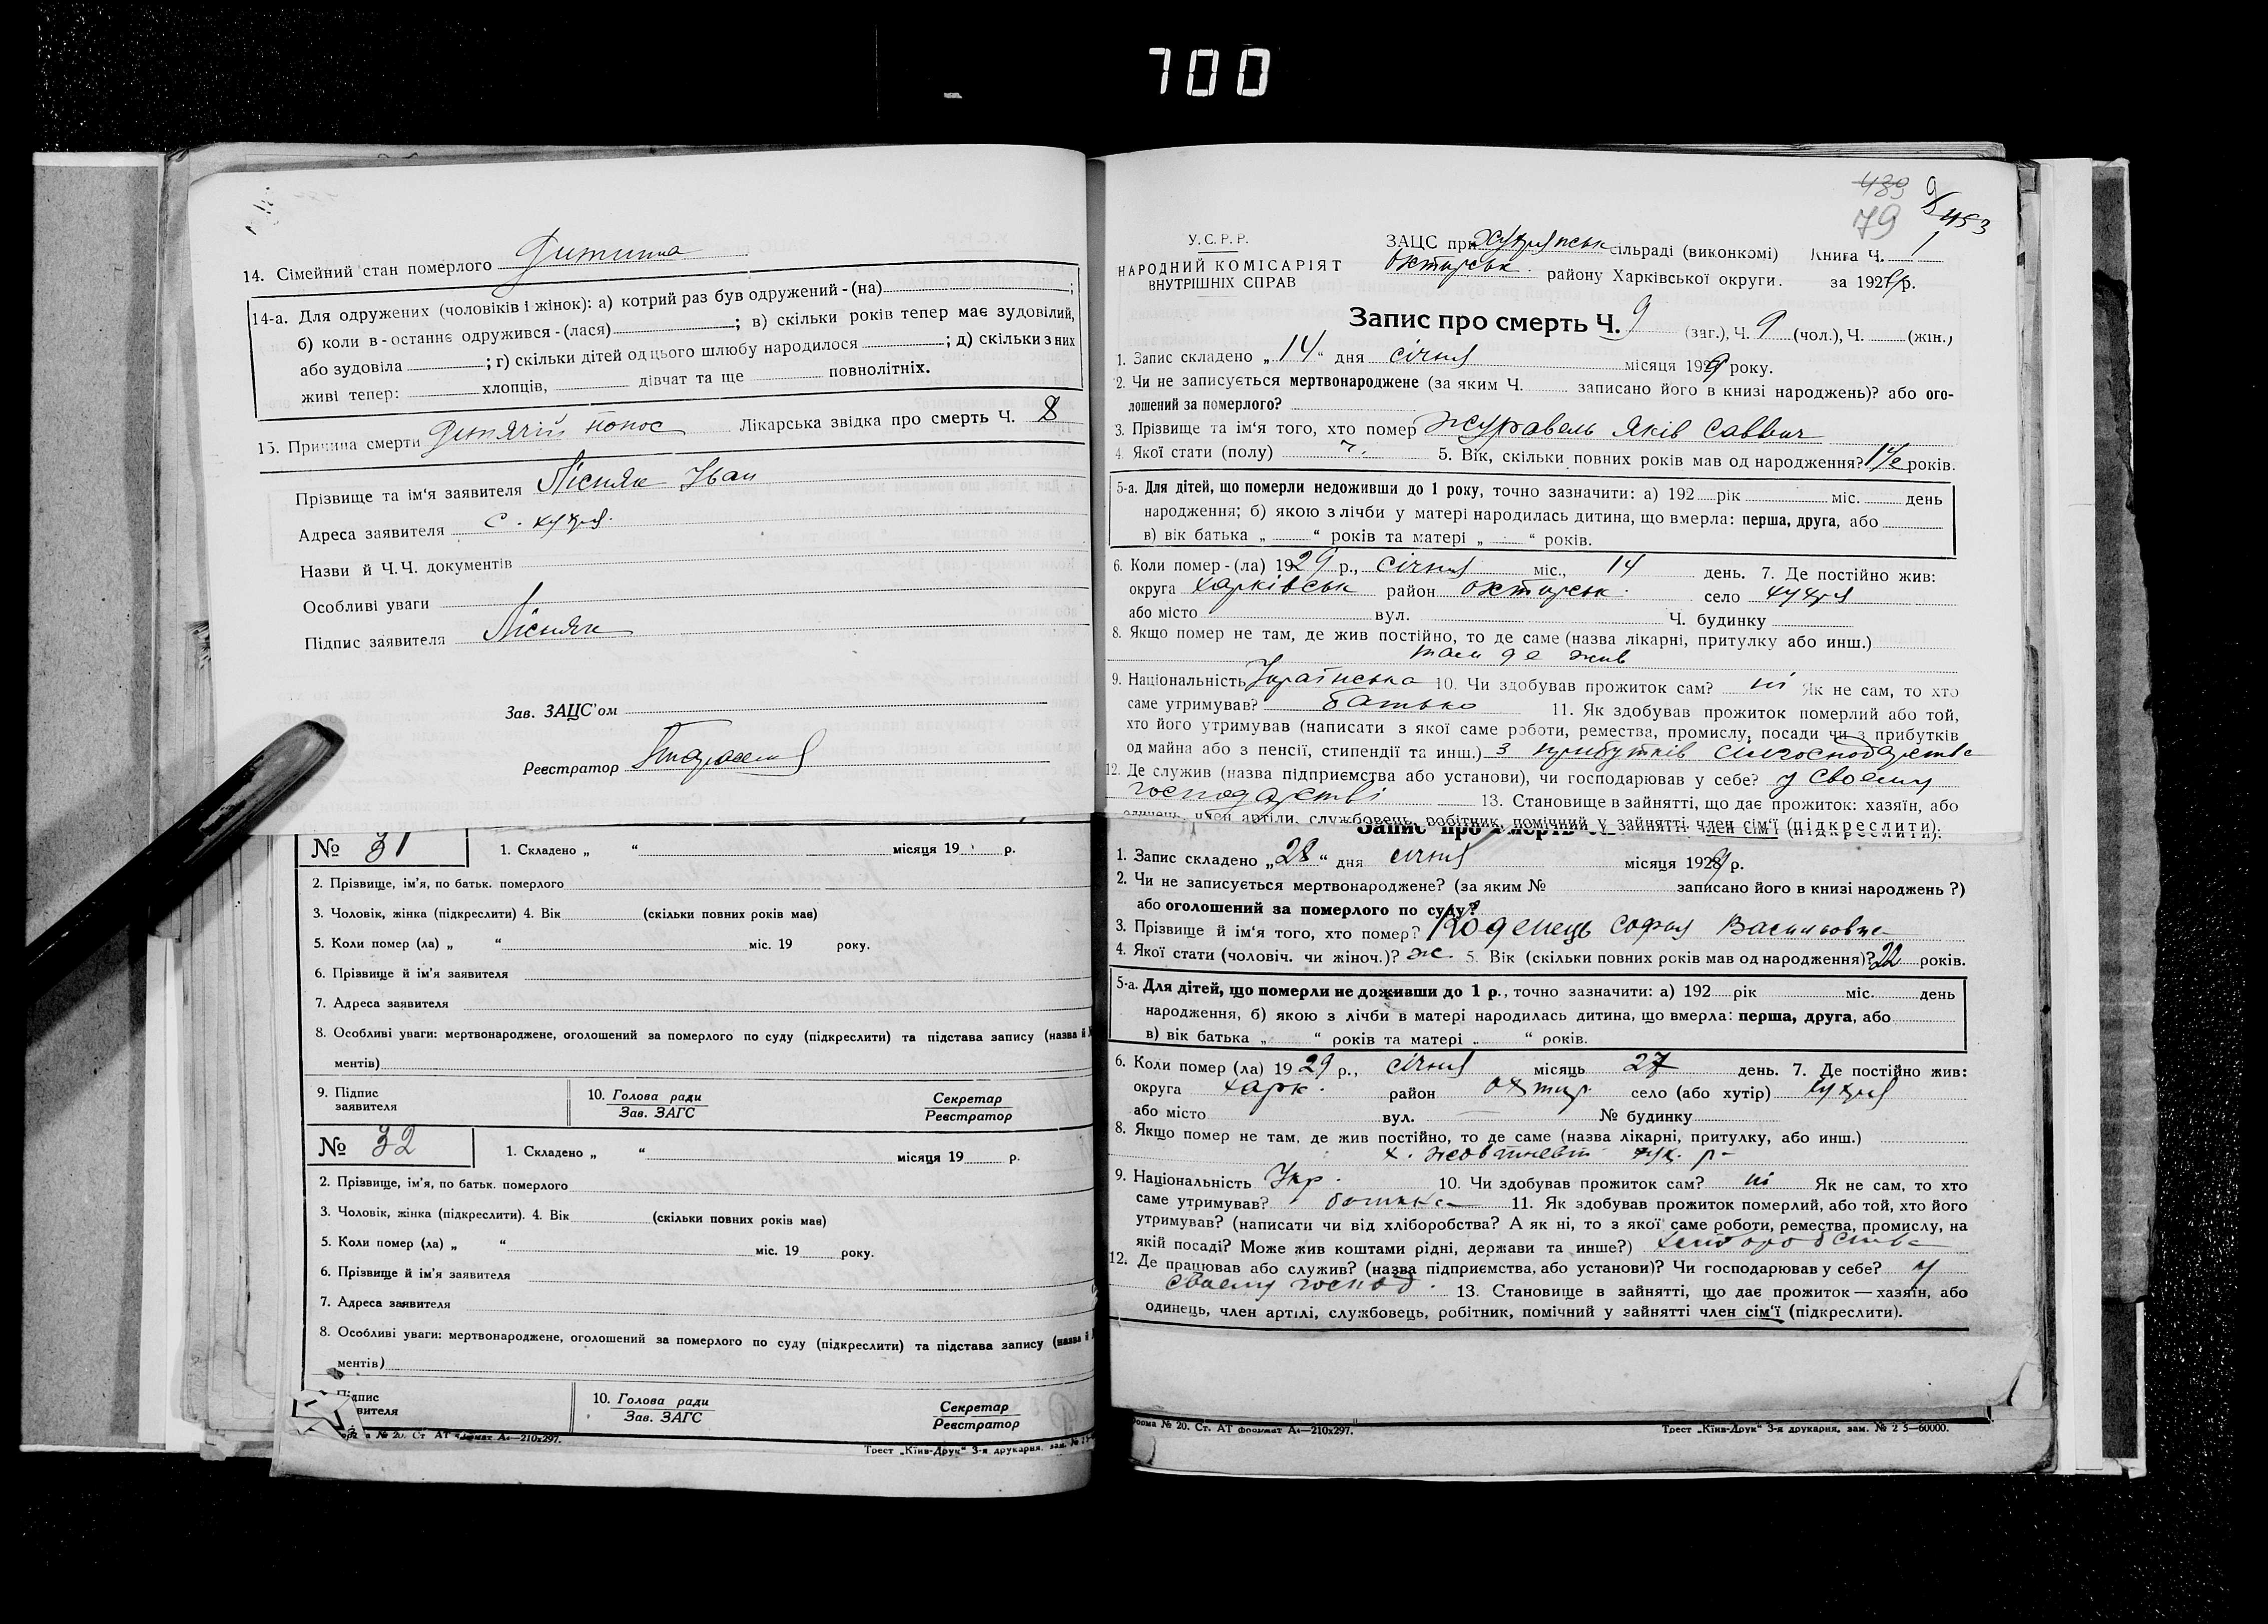 700
14. Сімейний стан померлого Дитина
14-а. Для одружених (чоловіків і жінок): а) котрий раз був одружений - (на) ;
б) коли в-останнє одружився - (лася) ; в) скільки років тепер має зудовілий,
або зудовіла ; г) скільки дітей од цього шлюбу народилося ; д) скільки з них
живі тепер: хлопців, дівчат та ще повнолітніх.
15. Причина смерти Дитячій понос Лікарська звідка про смерть Ч. 8
Прізвище та ім'я заявителя Лісняк Іван
Адреса заявителя с.
Назви й Ч.Ч. документів
Особливі уваги
Підпис заявителя Лісняк
Зав. ЗАЦС'ом
Реєстратор
№ 31 1. Складено „ “ місяця 19 р.
2. Прізвище, ім'я, по батьк. померлого
3. Чоловік, жінка (підкреслити) 4. Вік (скільки повних років має)
5. Коли помер (ла) „ “ міс. 19 року.
6. Прізвище й ім'я заявителя
7. Адреса заявителя
8. Особливі уваги: мертвонароджене, оголошений за померлого по суду (підкреслити) та підстава запису (назва й
ментів)
9. Підпис заявителя 10. Голова ради Зав. ЗАГС Секретар Реєстратор
№ 32 1. Складено „ “ місяця 19 р.
2. Прізвище, ім'я, по батьк. померлого
3. Чоловік, жінка (підкреслити). 4. Вік (скільки повних років має)
5. Коли помер (ла) „ “ міс. 19 року.
6. Прізвище й ім'я заявителя
7. Адреса заявителя
8. Особливі уваги: мертвонароджене, оголошений за померлого по суду (підкреслити) та підстава запису (назва й
ментів)
10. Голова ради Зав. ЗАГС Секретар Реєстратор
№ 20. Ст. АТ формат А4—210х297.
Трест „Київ-Друк“ 3-я друкарня, зам. №
489
79
453
У.С.Р.Р.
НАРОДНИЙ КОМІСАРІЯТ
ВНУТРІШНІХ СПРАВ
ЗАЦС при сільраді (виконкомі) Книга Ч. 1
району Харківської округи. за 1929 р.
Запис про смерть Ч. 9 (заг.), Ч. 9 (чол.), Ч. (жін.)
1. Запис складено „14“ дня січня місяця 1929 року.
2. Чи не записується мертвонароджене (за яким Ч. записано його в книзі народжень)? або ого-
лошений за померлого?
3. Прізвище та ім'я того, хто помер Журавель Яків Саввич
4. Якої стати (полу) ч. 5. Вік, скільки повних років мав од народження? 1½ років.
5-а. Для дітей, що померли недоживши до 1 року, точно зазначити: а) 192 рік міс. день
народження; б) якою з лічби у матері народилась дитина, що вмерла: перша, друга, або
в) вік батька „ “ років та матері „ “ років.
6. Коли помер - (ла) 1929 р., січня міс., 14 день. 7. Де постійно жив:
округа Харківськ район село
або місто вул. Ч. будинку
8. Якщо помер не там, де жив постійно, то де саме (назва лікарні, притулку або инш.)
там де жив
9. Національність Українська 10. Чи здобував прожиток сам? ні Як не сам, то хто
саме утримував? батько 11. Як здобував прожиток померлий або той,
хто його утримував (написати з якої саме роботи, ремества, промислу, посади чи з прибутків
од майна або з пенсії, стипендії та инш.) з прибутків
12. Де служив (назва підприємства або установи), чи господарював у себе? у своему
господарстві 13. Становище в зайнятті, що дає прожиток: хазяїн, або
одинець, член артіли, службовець, робітник, помічний у зайнятті член сім'ї (підкреслити).
Запис про смерть
1. Запис складено „28“ дня січня місяця 1929 р.
2. Чи не записується мертвонароджене? (за яким № записано його в книзі народжень ?)
або оголошений за померлого по суду?
3. Прізвище й ім'я того, хто помер? Софья Васильовна
4. Якої стати (чоловіч. чи жіноч.)? ж. 5. Вік (скільки повних років мав од народження)? 22 років.
5-а. Для дітей, що померли не доживши до 1 р., точно зазначити: а) 192 рік міс. день
народження, б) якою з лічби в матері народилась дитина, що вмерла: перша, друга, або
в) вік батька „ “ років та матері „ “ років.
6. Коли помер (ла) 1929 р., січня місяць 27 день. 7. Де постійно жив:
округа Харк. район Охтир село (або хутір)
або місто вул. — № будинку
8. Якщо помер не там, де жив постійно, то де саме (назва лікарні, притулку, або инш.)
9. Національність Укр. 10. Чи здобував прожиток сам? ні Як не сам, то хто
саме утримував? 11. Як здобував прожиток померлий, або той, хто його
утримував? (написати чи від хліборобства? А як ні, то з якої саме роботи, ремества, промислу, на
якій посаді? Може жив коштами рідні, держави та инше?)
12. Де працював або служив? (назва підприємства, або установи)? Чи господарював у себе? у
своему господ. 13. Становище в зайнятті, що дає прожиток — хазяїн, або
одинець, член артілі, службовець, робітник, помічний у зайнятті член сім'ї (підкреслити).
Форма № 20. Ст. АТ формат А4—210х297.
Трест „Київ-Друк“ 3-я друкарня, зам. № 2 5—60000.